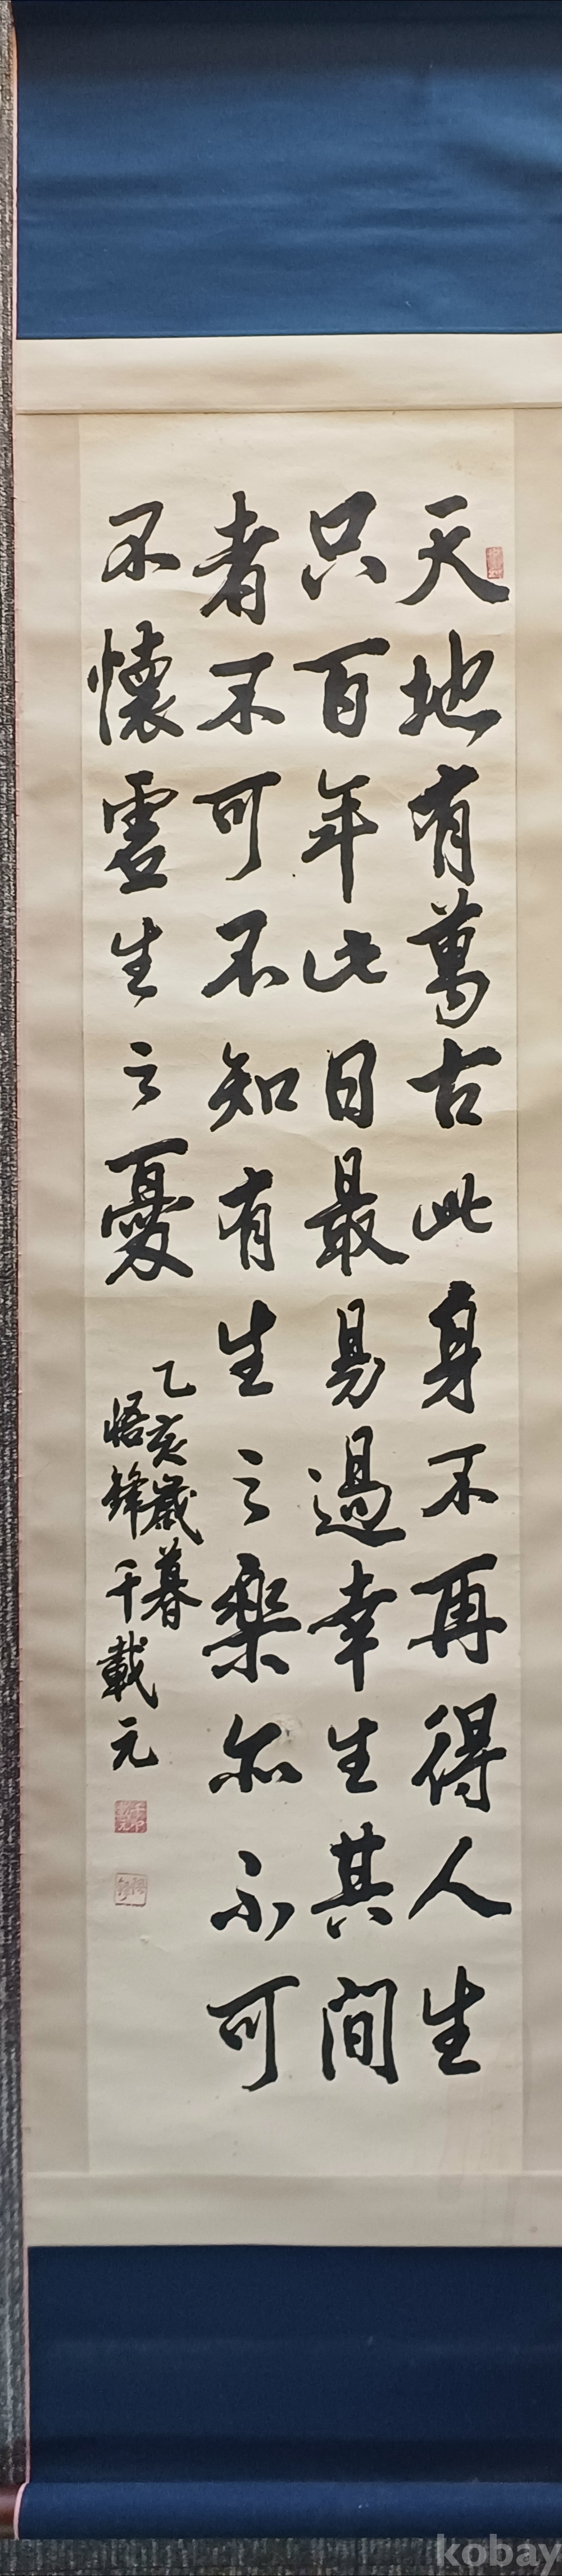 天地有萬古此身不再得人生
只百年此日最易過幸生其間
者不可不知有生之樂亦不可
不懷虛生之憂
乙亥歲暮
悟鋒千載元
kobay